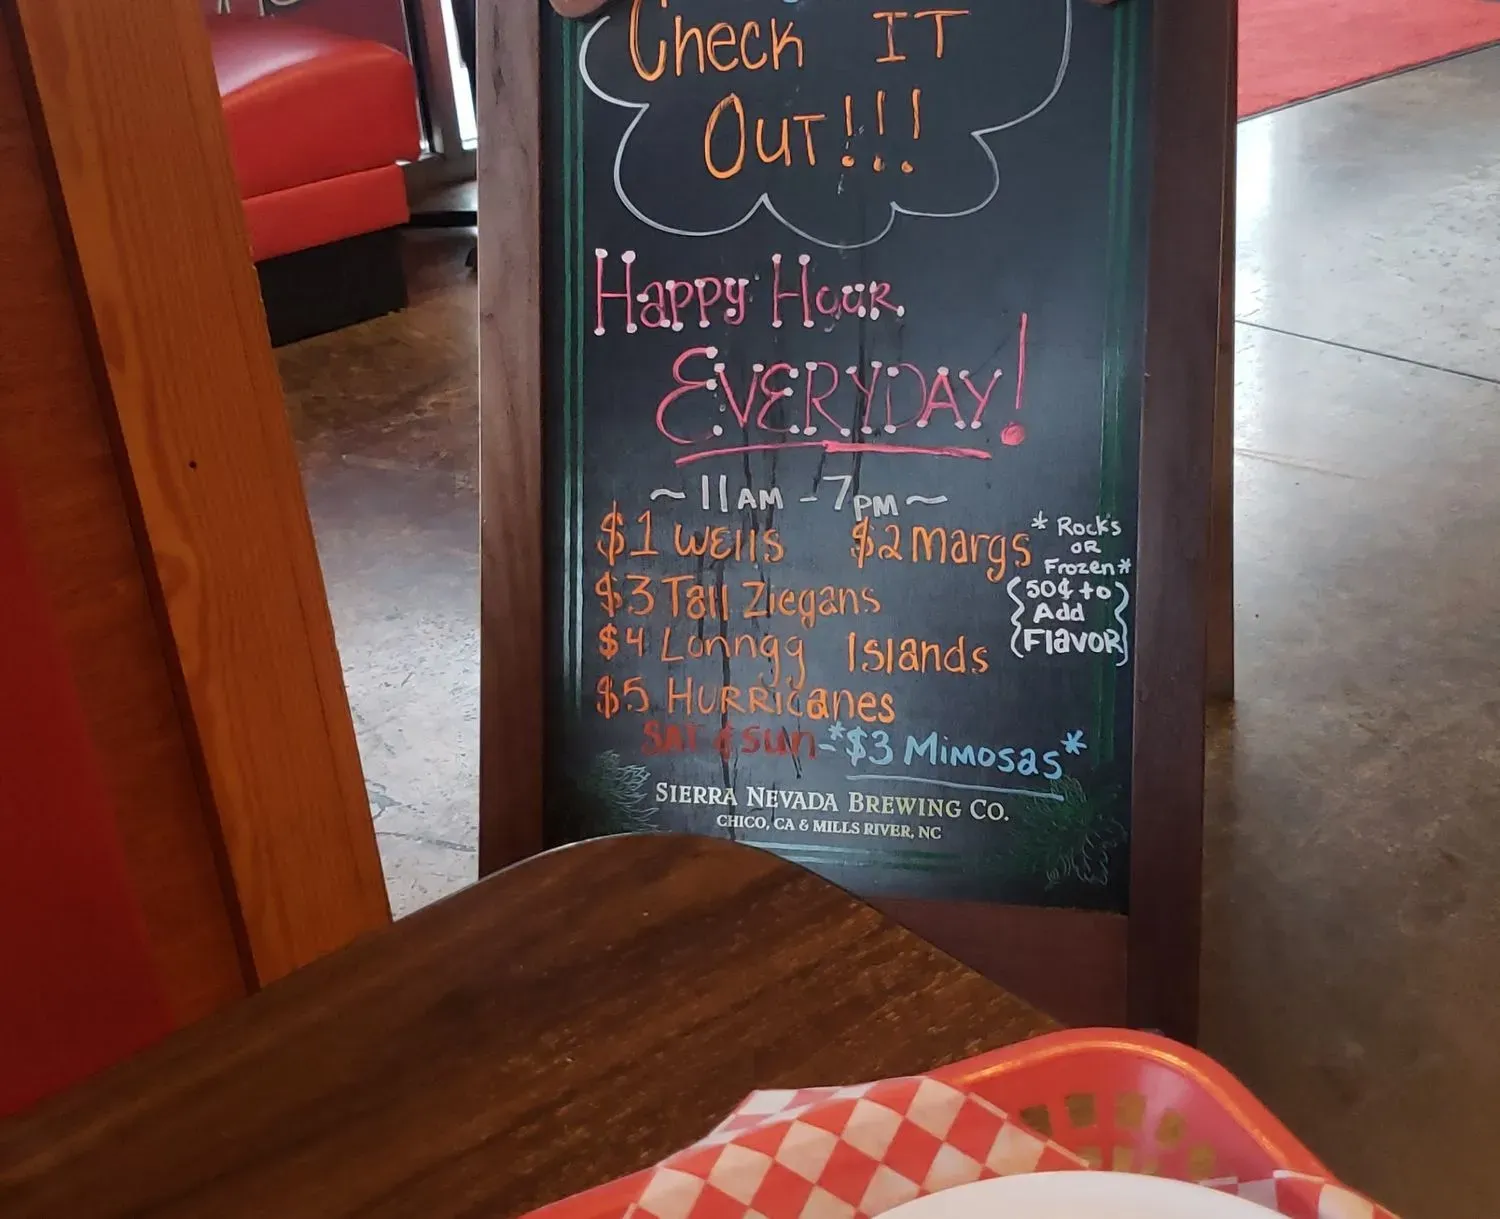 Check IT
OUT!!!
Happy Hour
EVERYDAY!
~ 11AM - 7PM ~
$1 Wells $2 Margs * Rocks
OR
Frozen *
$3 Tall Ziegans
{50¢ to}
Add
{Flavor}
$4 Lonngg Islands
$5 HURRICanes
SAT & SUN - *$3 Mimosas*
SIERRA NEVADA BREWING CO.
CHICO, CA & MILLS RIVER, NC